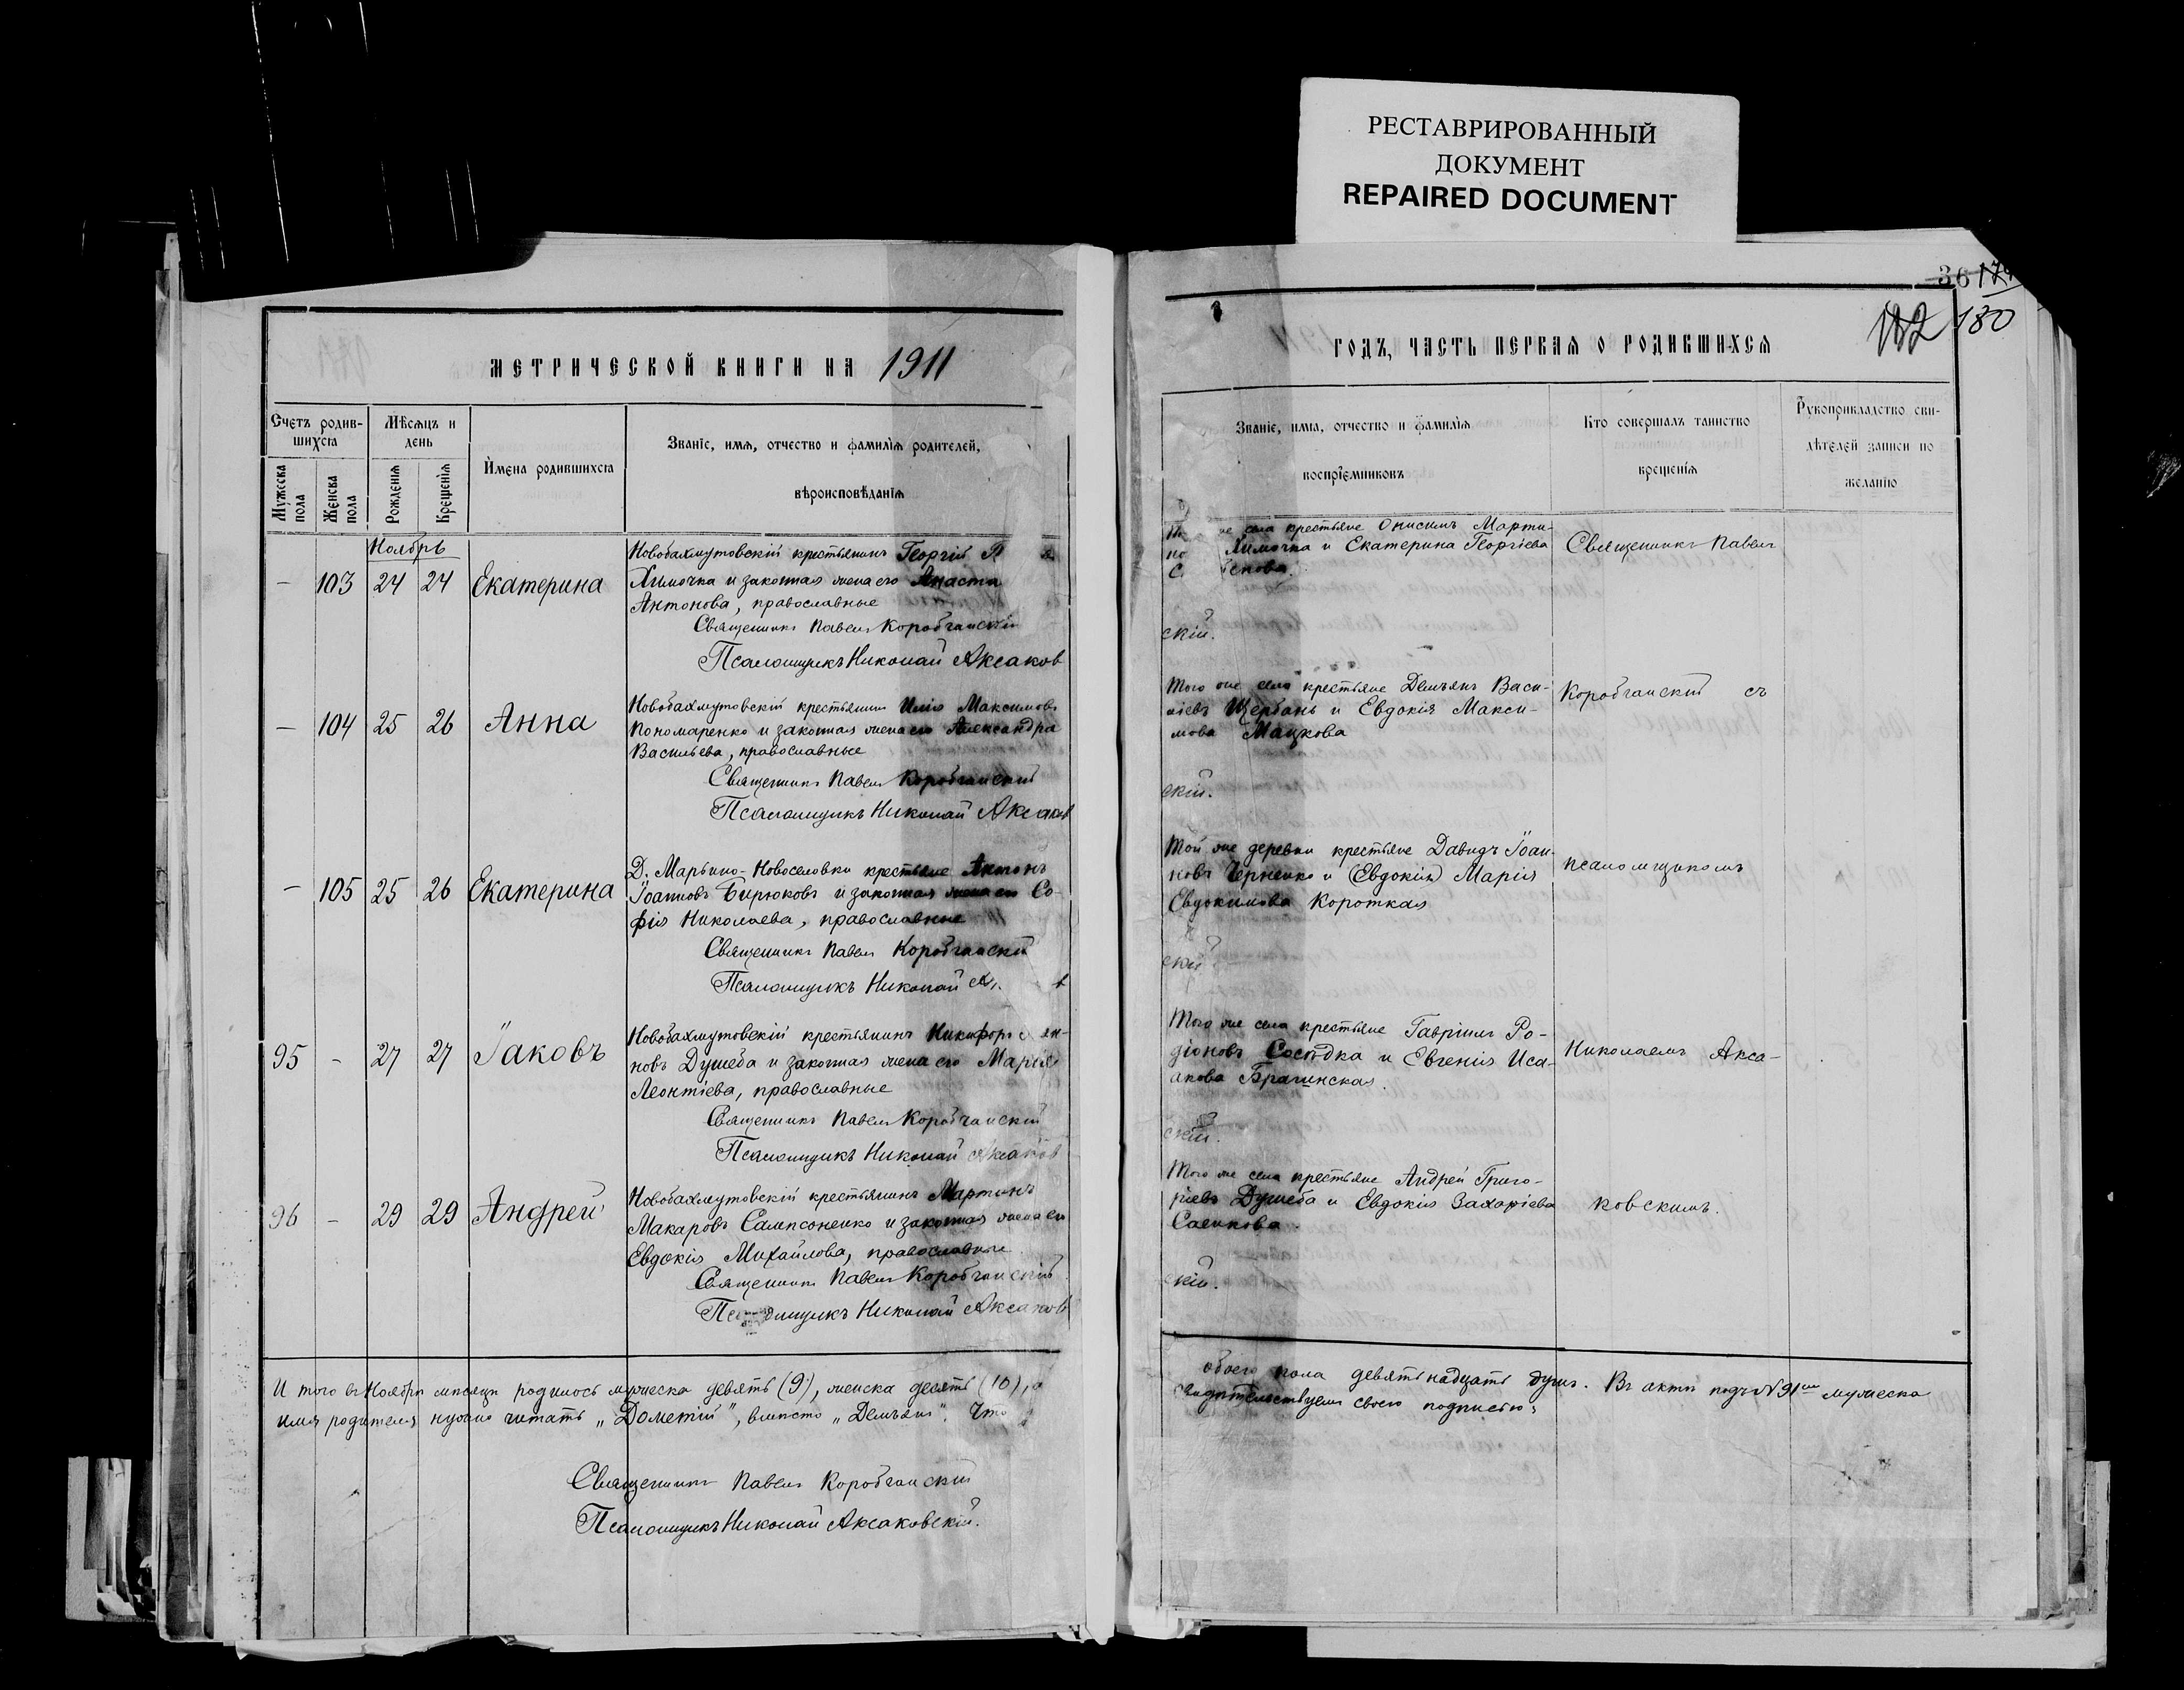 РЕСТАВРИРОВАННЫЙ
ДОКУМЕНТ
REPAIRED DOCUMENT
МЕТРИЧЕСКОЙ КНИГИ НА 1911
Счетъ родив-
шихсѧ
Мѣсѧцъ и
день
Имена родившихсѧ
Званіе, имѧ, отчество и фамиліѧ родителей,
вѣроисповѣданіѧ
Мужеска пола
Женска пола
Рожденіѧ
Крещеніѧ
Ноябрь
— 103 24 24 Екатерина
Новобахмутовскій крестьянинъ Георгій
Химочка и законная жена его
Антонова, православные
Священникъ Павелъ Коробчанскій
Псаломщикъ Николай Аксаков
— 104 25 26 Анна
Новобахмутовскій крестьянинъ Илія Максимовъ
Пономаренко и законная жена его Александра
Васильева, православные
Священникъ Павелъ Коробчанскій
Псаломщикъ Николай Аксаков
— 105 25 26 Екатерина
Д. Марьино-Новоселовки крестьяне Антонъ
Іоанновъ Бирюковъ и законная жена его Со-
фія Николаева, православные
Священникъ Павелъ Коробчанскій
Псаломщикъ Николай
95 — 27 27 Іаковъ
Новобахмутовскій крестьянинъ Никифоръ
новъ Душеба и законная жена его Марія
Леонтіева, православные
Священникъ Павелъ Коробчанскій
Псаломщикъ Николай Аксаков
96 — 29 29 Андрей
Новобахмутовскій крестьянинъ Мартинъ
Макаровъ Сампсоненко и законная жена его
Евдокія Михайлова, православные
Священникъ Павелъ Коробчанскій
Псаломщикъ Николай Аксаков
И того въ Ноябрѣ мѣсяцѣ родилось мужеска девять (9), женска десять (10), а
имя родителя нужно читать „Дометій", вмѣсто „Демьянъ". Что
Священникъ Павелъ Коробчанскій
Псаломщикъ Николай Аксаковскій.
36
182 180
ГОДЪ, ЧАСТЬ ПЕРВАЯ О РОДИВШИХСЯ
Званіе, имѧ, отчество и фамиліѧ
воспріемниковъ
Кто совершалъ таинство
крещеніѧ
Рукоприкладство сви-
дѣтелей записи по
желанію
же села крестьяне Онисимъ Марти-
Химочка и Екатерина Георгіева
Священникъ Павелъ
скій.
Того же села крестьяне Демьянъ Васи-
ліевъ Щербань и Евдокія Макси-
мова Мацкова
Коробчанскій съ
скій.
Той же деревни крестьяне Давидъ Іоан-
новъ Черненко и (Евдокія) Марія
Евдокимова Короткая
псаломщикомъ
скій
Того же села крестьяне Гавріилъ Ро-
діоновъ Сосѣдка и Евгенія Иса-
акова Брагинская.
Николаемъ Акса-
скій.
Того же села крестьяне Андрей Григо-
ріевъ Душеба и Евдокія Захаріева
Саенкова.
ковскимъ.
скій.
обоего пола девятьнадцать душъ. Въ актѣ подъ №91ᵐ мужеска
свидѣтельствуемъ своею подписью: